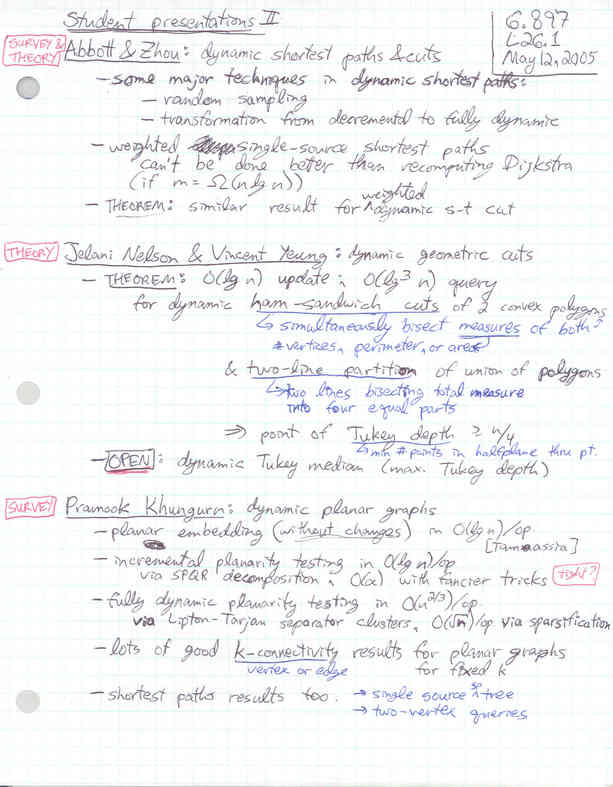 Student presentations II
6.897
L26.1
May 12, 2005
SURVEY & THEORY
Abbott & Zhou: dynamic shortest paths & cuts
- some major techniques in dynamic shortest paths:
- random sampling
- transformation from decremental to fully dynamic
- weighted single-source shortest paths
can't be done better than recomputing Dijkstra
(if m = Ω(n lg n))
- THEOREM: similar result for weighted dynamic s-t cut
THEORY
Jelani Nelson & Vincent Yeung: dynamic geometric cuts
- THEOREM: O(lg n) update, O(lg³ n) query
for dynamic ham-sandwich cuts of 2 convex polygons
↳ simultaneously bisect measures of both:
# vertices, perimeter, or area
& two-line partition of union of polygons
↳ two lines bisecting total measure
into four equal parts
⇒ point of Tukey depth ≥ n/4
↳ min # points in halfplane thru pt.
- OPEN: dynamic Tukey median (max. Tukey depth)
SURVEY
Pramook Khungurn: dynamic planar graphs
- planar embedding (without changes) in O(lg n)/op.
[Tamassia]
- incremental planarity testing in O(lg n)/op
via SPQR decomposition, O(α) with fancier tricks
tight?
- fully dynamic planarity testing in O(n^2/3)/op.
via Lipton-Tarjan separator clusters, O(√n)/op via sparsification
- lots of good k-connectivity results for planar graphs
vertex or edge
for fixed k
- shortest paths results too. → single source sp tree
→ two-vertex queries